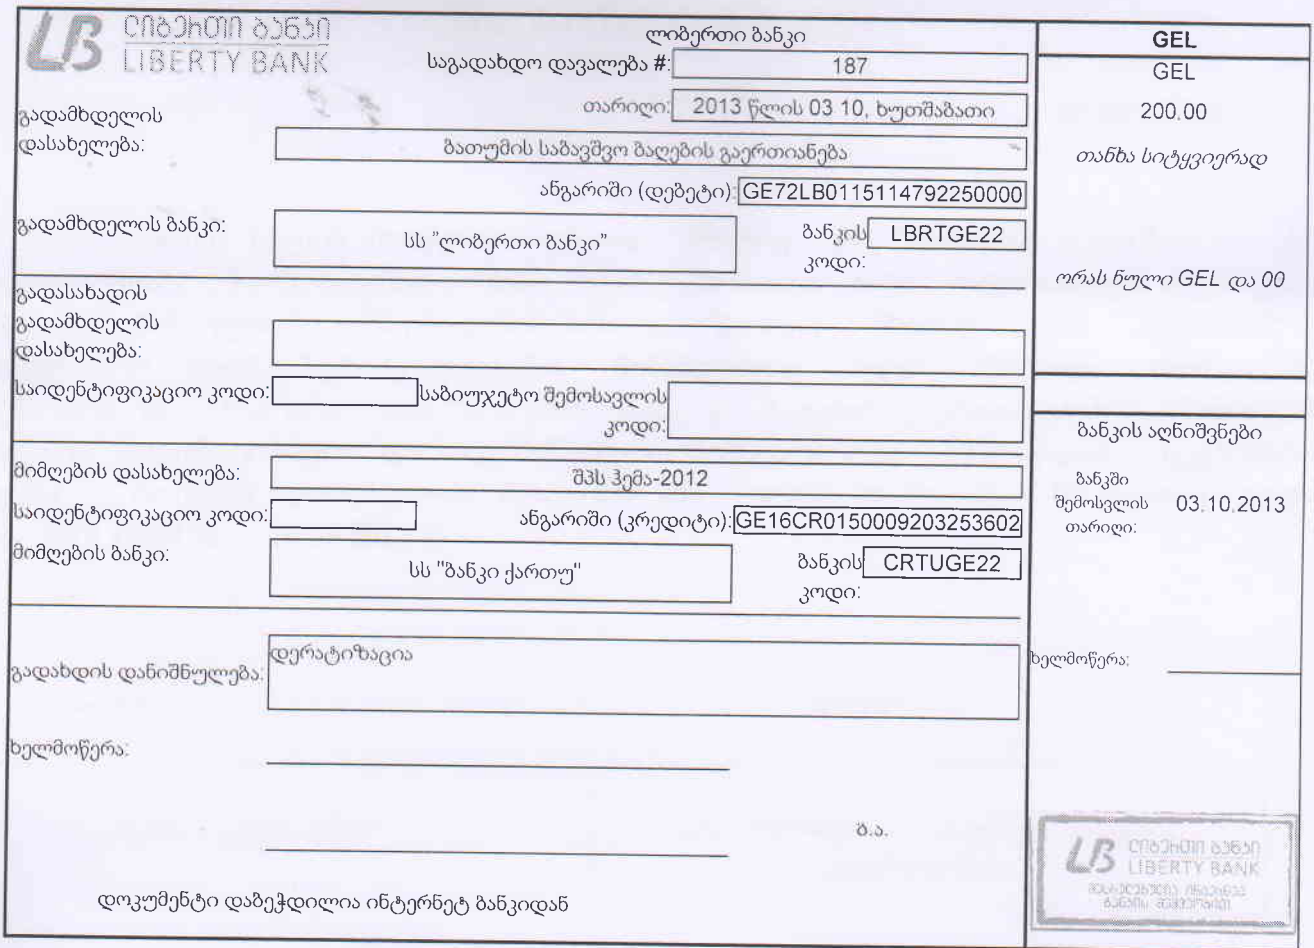 ლიბერთი ბანკი
LIBERTY BANK
ლიბერთი ბანკი
საგადახდო დავალება #: 187
თარიღი: 2013 წლის 03 10, ხუთშაბათი
გადამხდელის
დასახელება:
ბათუმის საბავშვო ბაღების გაერთიანება
ანგარიში (დებეტი): GE72LB0115114792250000
გადამხდელის ბანკი:
სს "ლიბერთი ბანკი"
ბანკის
კოდი:
LBRTGE22
გადასახადის
გადამხდელის
დასახელება:
საიდენტიფიკაციო კოდი:
საბიუჯეტო შემოსავლის
კოდი:
მიმღების დასახელება:
შპს ჰემა-2012
საიდენტიფიკაციო კოდი:
ანგარიში (კრედიტი): GE16CR0150009203253602
მიმღების ბანკი:
სს "ბანკი ქართუ"
ბანკის
კოდი:
CRTUGE22
გადახდის დანიშნულება:
დერატიზაცია
ხელმოწერა:
ბ.ა.
დოკუმენტი დაბეჭდილია ინტერნეტ ბანკიდან
GEL
GEL
200.00
თანხა სიტყვიერად
ორას ნული GEL და 00
ბანკის აღნიშვნები
ბანკში
შემოსვლის
თარიღი:
03.10.2013
ხელმოწერა:
ლიბერთი ბანკი
LIBERTY BANK